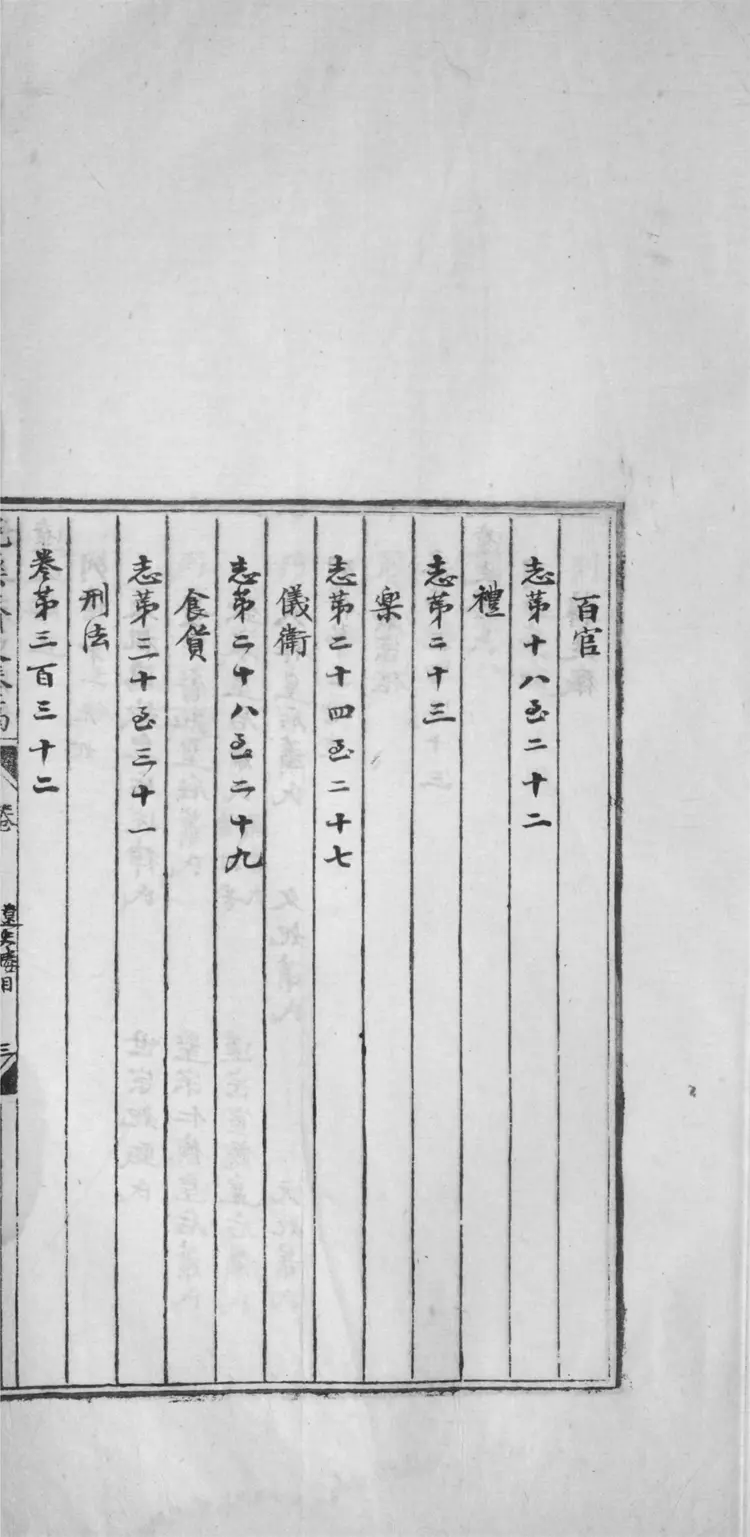 百官
志第十八至二十二
禮
志第二十三
樂
志第二十四至二十七
儀衛
志第二十八至二十九
食貨
志第三十至三十一
刑法
卷第三百三十二
卷
遼史總目
三